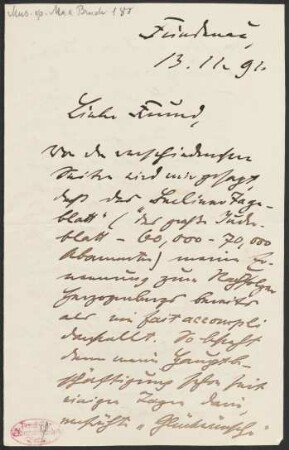 Mus. ep. Max Bruch 188
Friedenau,
13. 11. 91.
Lieber Freund,
von den verschiedensten
Seiten wird mir gesagt,
daß das Berliner Tage-
blatt" ("das große Juden-
blatt - 60,000 - 70,000
Abonnenten) meine Er-
nennung zum Nachfolger
Herzogenbergs bereits
als ein fait accompli
darstellt. So besteht
denn meine Hauptbe-
schäftigung schon seit
einigen Tagen darin,
Glückwünsche